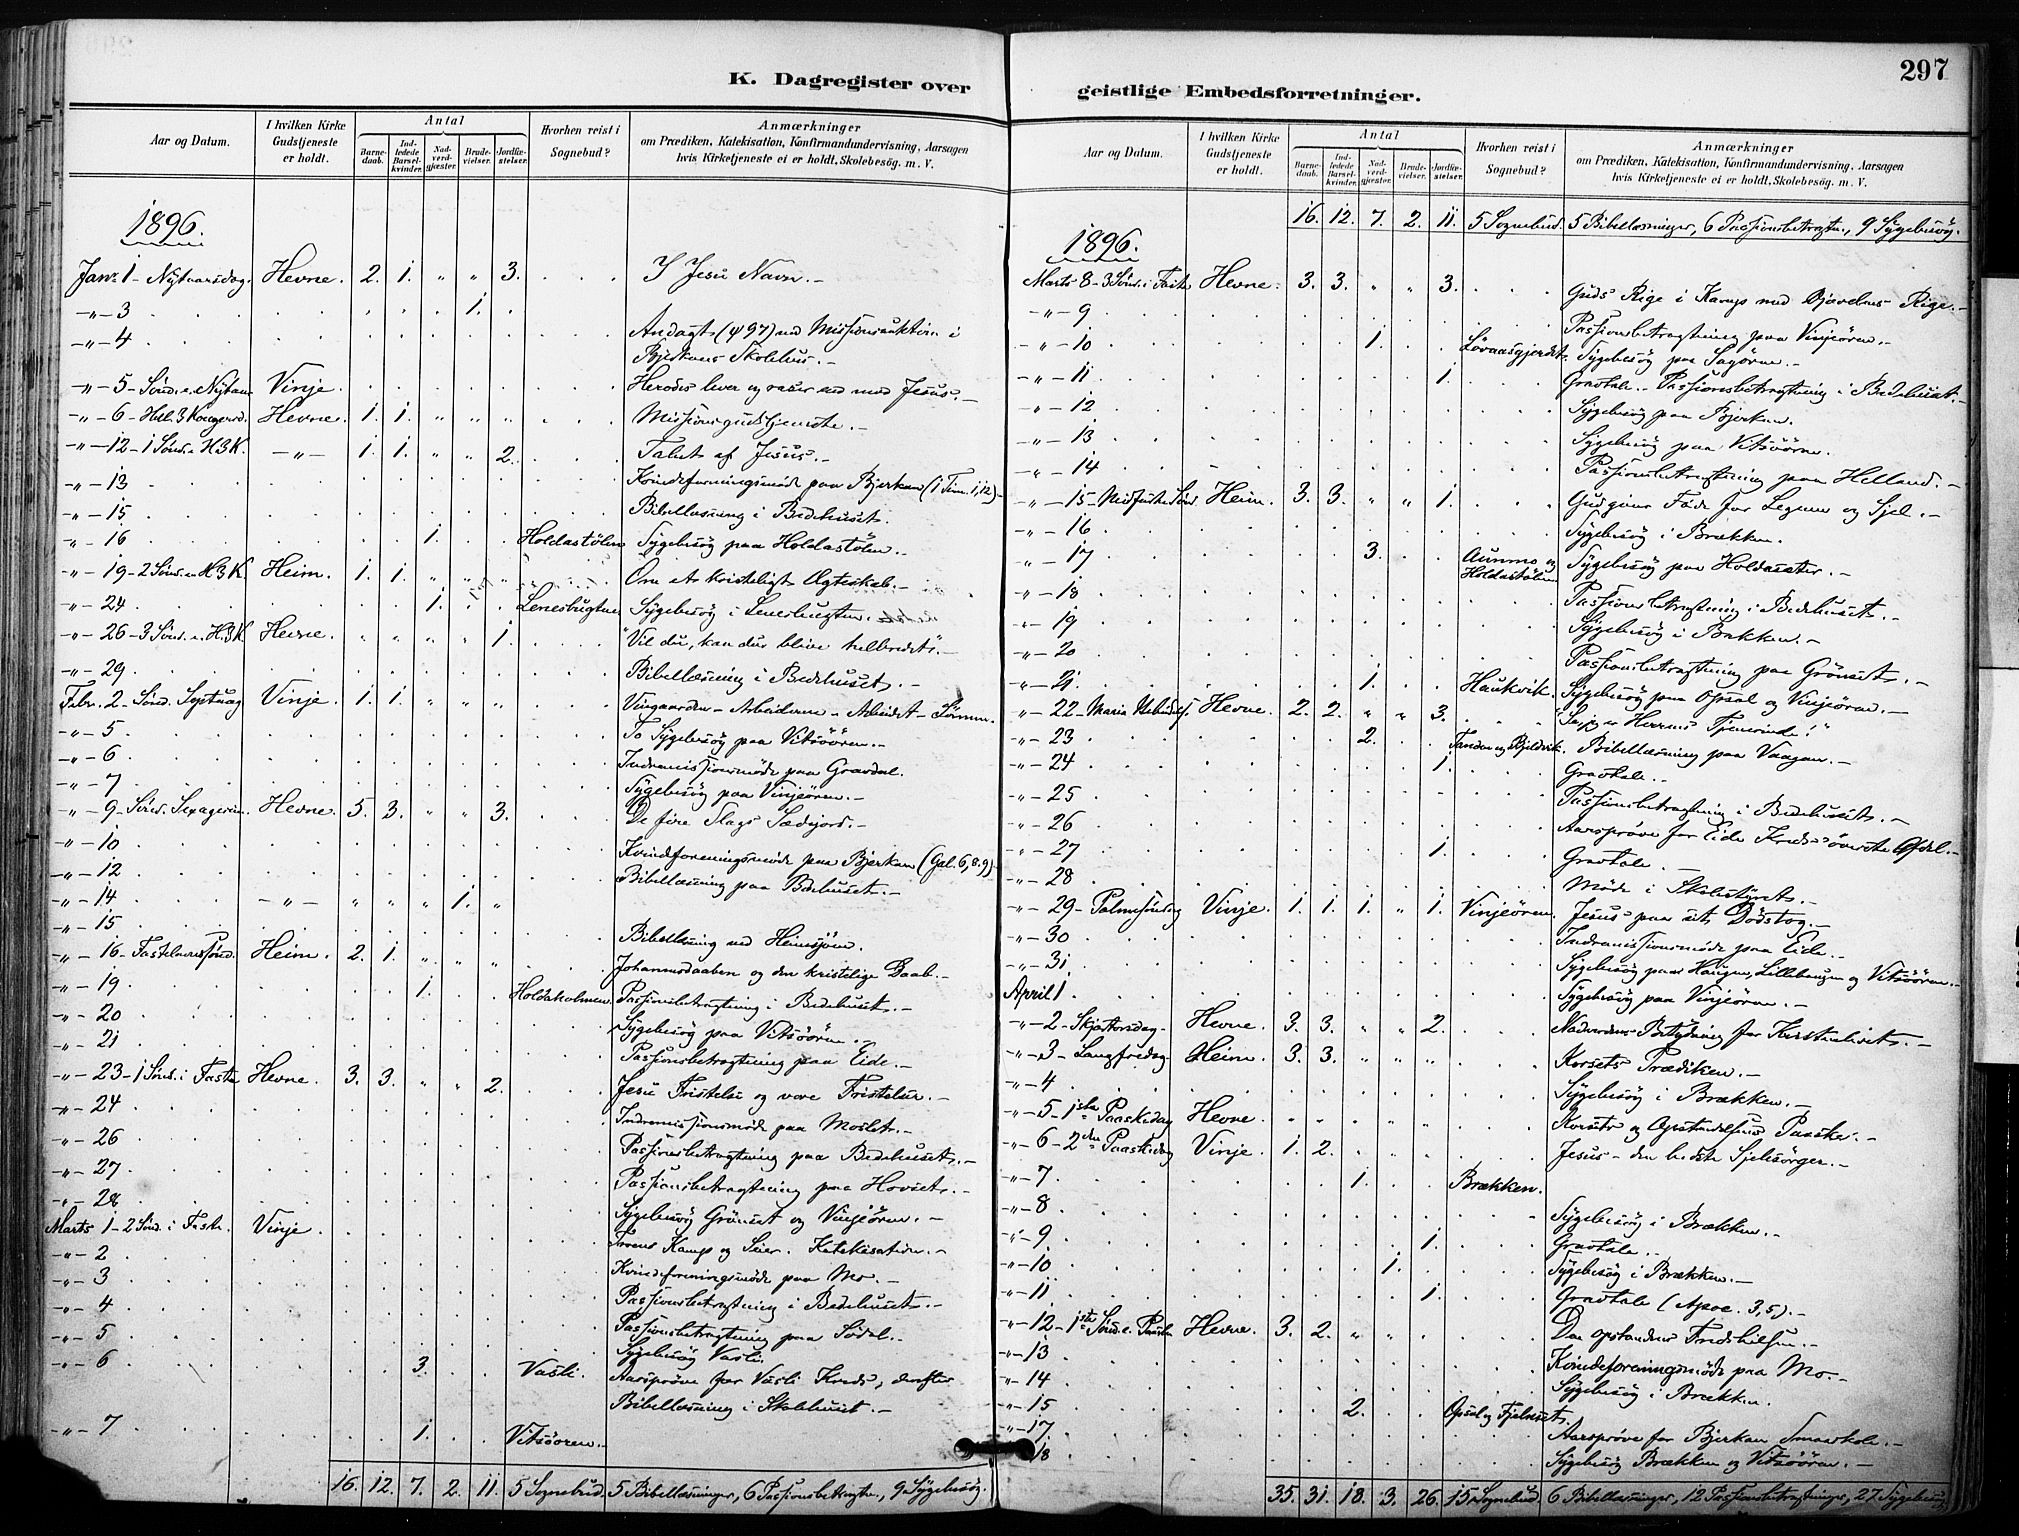 297
K. Dagregister over
geistlige Embedsforretninger.
Aar og Datum. I hvilken Kirke Gudstjeneste er holdt. Antal Barnedaab. Indledede Barselkvinder. Nadverdgjæster. Brudevielser. Jordfæstelser. Hvorhen reist i Sognebud? Anmærkninger om Prædiken, Katekisation, Konfirmandundervisning, Aarsagen hvis Kirketjeneste ei er holdt, Skolebesög. m. V.
1896.
Janr 1 - Nytaarsdag. Hevne. 2. 1. " " 3. I Jesu Navn.-
-"- 3 1.
-"- 4 Andagt (ψ 97) ved Missionsauktion i
Bjerkans Skolehus.-
-"- 5 - Sönd. e. Nytaar Vinje. Herodes lever og raser end mod Jesus.-
-"- 6 - Hel. 3 Kongersd. Hevne. 1. 1. " " " Missionsgudstjeneste.-
-"- 12 - 1 Sönd. e. H3K. -"- 1. 1. " " 2. Talet af Jesus.-
-"- 13 Kvindeforeningsmöde paa Bjerkan (1 Tim. 1,12)-
-"- 15 Bibellæsning i Bedehuset.
-"- 16 1. Holdastölen Sygebesög paa Holdastölen.-
-"- 19 - 2 Sönd. e. H3K. Heim. 1. 1. " " " Om et kristeligt Ægteskab.-
-"- 24 1. Lenesbugten Sygebesög i Lenesbugten.
-"- 26 - 3 Sönd. e. H3K. Hevne. " " " " 1. "Vil du, kan du blive helbredet".-
-"- 29 Bibellæsning i Bedehuset.-
Febr. 2 - Sönd. Septuag Vinje. 1. 1. " " " Vingaarden - Arbeiderne - Arbeidet - Lönnen.
-"- 5 To Sygebesög paa Vitsöören.-
-"- 6 Indremissionsmöde paa Gravdal.
-"- 7 Sygebesög paa Vinjeören.-
-"- 9 - Sönd. Sexagesim. Hevne. 5. 3. " " 3. De fire Slags Sædejord.-
-"- 10
-"- 12 Kvindeforeningsmöde paa Bjerkan (Gal. 6,8.9)
-"- 14 -"- " " " 1. " Bibellæsning paa Bedehuset.-
-"- 15 Bibellæsning ved Heimsjöen.
-"- 16 - Fastelavnssönd. Heim. 2. 1. " " " Johannesdaaben og den kristelige Daab.-
-"- 19 1. Holdaholmen Passionsbetragtning i Bedehuset.-
-"- 20 Sygebesög paa Vitsöören.-
-"- 21 Passionsbetragtning paa Eide.-
-"- 23 - 1 Sönd. i Faste Hevne. 3. 3. " " 2. Jesu Fristelse og vore Fristelser.-
-"- 24 Indremissionsmöde paa Moslet.-
-"- 26 Passionsbetragtning paa Bedehuset.-
-"- 27 Passionsbetragtning paa Hovset.-
-"- 28 Sygebesög Grönset og Vinjeören.-
Marts 1 - 2 Sönd. i Faste. Vinje. Troens Kamp og Seier. Katekisation.-
-"- 2 Kvindeforeningsmöde paa Mo.-
-"- 3 Passionsbetragtning i Bedehuset.-
-"- 4 Passionsbetragtning paa Södal.-
-"- 5 Sygebesög Vasli.
-"- 6 3. Vasli. Aarspröve for Vasli Kreds, derefter
Bibellæsning i Skolehuset.-
-"- 7 1. Vitsöören.-
16. 12. 7. 2. 11. 5 Sognebud. 5 Bibellæsninger, 6 Passionsbetragtn., 9 Sygebesög.
Aar og Datum. I hvilken Kirke Gudstjeneste er holdt. Antal Barnedaab. Indledede Barselkvinder. Nadverdgjæster. Brudevielser. Jordfæstelser. Hvorhen reist i Sognebud? Anmærkninger om Prædiken, Katekisation, Konfirmandundervisning, Aarsagen hvis Kirketjeneste ei er holdt, Skolebesög. m. V.
16. 12. 7. 2. 11. 5 Sognebud. 5 Bibellæsninger, 6 Passionsbetragtn., 9 Sygebesög.
1896.
Marts 8 - 3 Sönd. i Faste Hevne. 3. 3. " " 3. Guds Rige i Kamp med Djævelens Rige.-
-"- 9 Passionsbetragtning paa Vinjeören.-
-"- 10 1. Lövaasgjerdet. Sygebesög paa Saören.-
-"- 11 1. Gravtale.- Passionsbetragtning i Bedehuset.-
-"- 12 Sygebesög paa Bjerkan.
-"- 13 Sygebesög paa Vitsöören.
-"- 14 Passionsbetragtning paa Helland.-
-"- 15 - Midfaste Sönd. Heim. 3. 3. " " 1. Gud giver Föde for Legeme og Sjel.-
-"- 16 Sygebesög i Brækken.
-"- 17 3. Aunmo og Holdastölen Sygebesög paa Holdasæter.-
-"- 18 Passionsbetragtning i Bedehuset.-
-"- 19 Sygebesög i Brækken.-
-"- 20 Passionsbetragtning paa Grönset.-
-"- 21 1. Haukvik. Sygebesög paa Opsal og Vinjeören.-
-"- 22 - Maria Bebudelse. Hevne. 2. 2. " " 3. "Se, jeg er Herrens Tjenerinde!"
-"- 23 2. Bibellæsning paa Vaagan.-
-"- 24 1. Gravtale.-
-"- 25 Passionsbetragtning i Bedehuset.-
-"- 26 Aarspröve for Eide Kreds' överste Afdel.-
-"- 27 1. Gravtale.
-"- 28 Möde i Skolestyret.-
-"- 29 - Palmesöndag Vinje. 1. 1. 1. " 1. Vinjeören. Jesus paa sit Dödstog.-
-"- 30 Indremissionsmöde paa Eide.-
-"- 31 Sygebesög paa Haugen, Lillehaugen og Vitsöören.-
April 1 Sygebesög paa Vinjeören.-
-"- 2 - Skjærtorsdag- Hevne. 3. 3. " " 2. Nadverdens Betydning for Kristenlivet.-
-"- 3 - Langfredag- Heim. 3. 3. " " " Korsets Prædiken.-
-"- 4 Sygebesög i Brækken.-
-"- 5 - 1ste Paaskedag Hevne. " " " " " Korsets og Opstandelsens Paaske.-
-"- 6 - 2den Paaskedag Vinje. 1. 2. " " " Jesus - den bedste Sjelesörger.-
-"- 7 1. Brækken.
-"- 8 Sygebesög i Brækken.-
-"- 9 1. Gravtale.-
-"- 10 1. Sygebesög i Brækken.-
-"- 11 1. Gravtale (Apoc. 3,5).-
-"- 12 - 1ste Sönd. e. Paaske Hevne. 3. 2. " " Den opstandnes Fredshilsen.-
-"- 13 Kvindeforeningsmöde paa Mo.-
-"- 14 Sygebesög i Brækken.
-"- 15 2. Opsal og Fjelnset.
-"- 17 Aarspröve for Bjerkan Smaaskole.-
-"- 18 Sygebesög Brækken og Vitsöören.-
35. 31. 18. 3. 26. 15 Sognebud. 6 Bibellæsninger, 12 Passionsbetragtninger, 27 Sygebesög